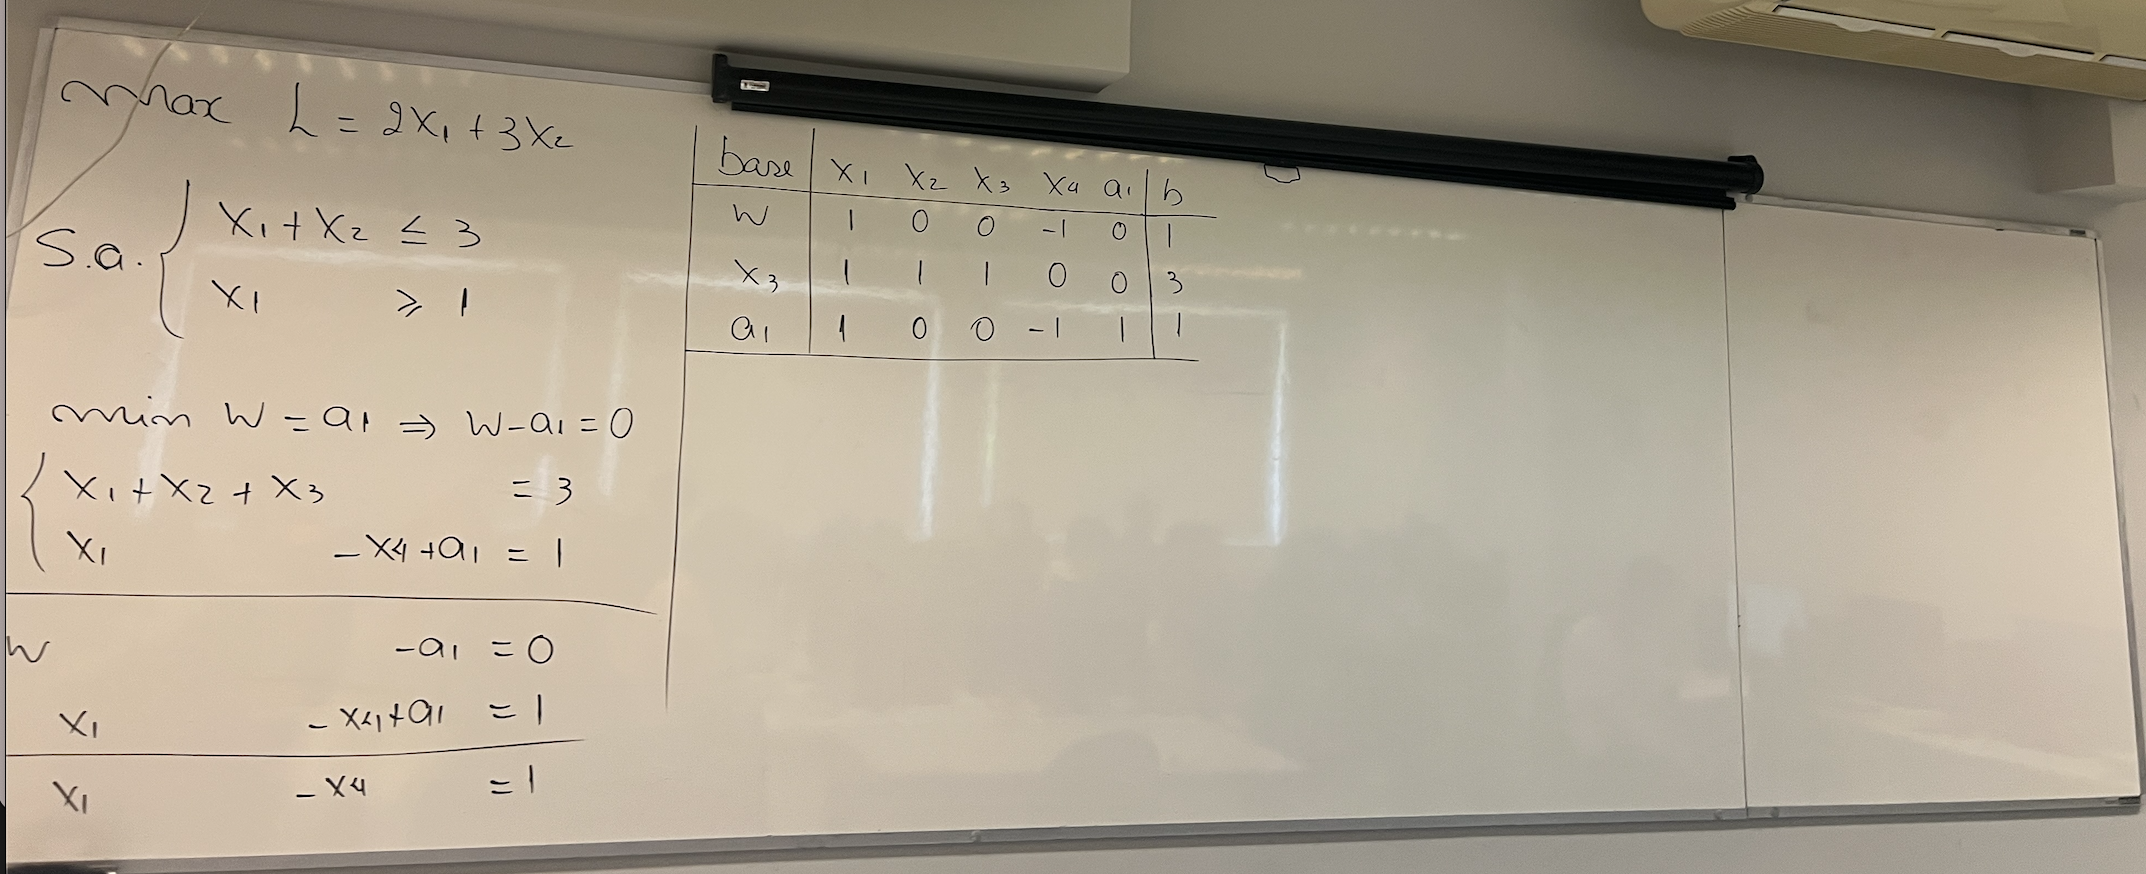 max L = 2x₁ + 3x₂
S.a. { x₁ + x₂ ≤ 3
x₁ ≥ 1
min W = a₁ ⇒ W - a₁ = 0
{ x₁ + x₂ + x₃ = 3
x₁ - x₄ + a₁ = 1
W - a₁ = 0
x₁ - x₄ + a₁ = 1
x₁ - x₄ = 1
base | x₁ x₂ x₃ x₄ a₁ | b
W | 1 0 0 -1 0 | 1
x₃ | 1 1 1 0 0 | 3
a₁ | 1 0 0 -1 1 | 1